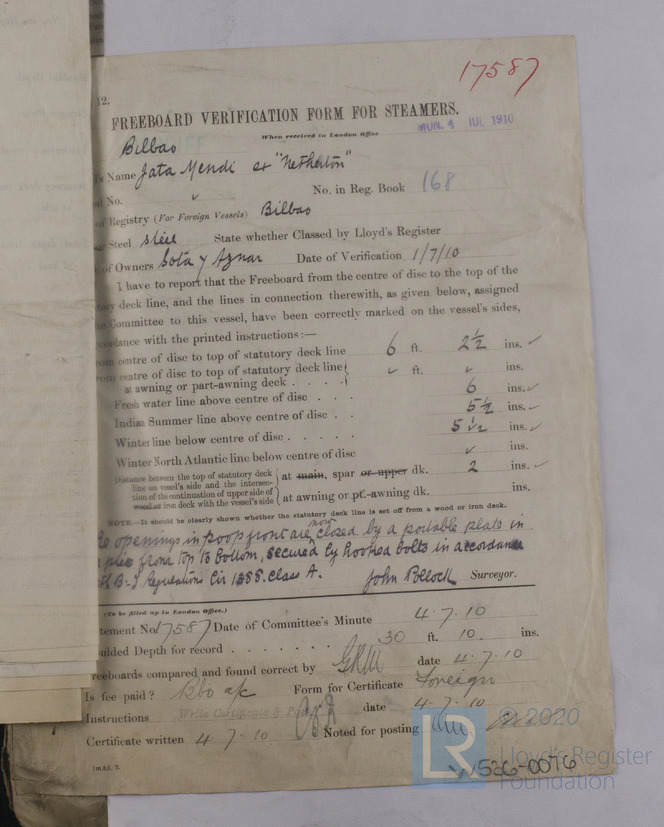 17587
12.
FREEBOARD VERIFICATION FORM FOR STEAMERS.
When received in London Office
MON. 4 JUL 1910
Bilbao
's Name Jata Mendi ex "Netherton"
No. in Reg. Book 168
No.
of Registry (For Foreign Vessels) Bilbao
Steel Steel State whether Classed by Lloyd's Register
of Owners Sota y Aznar Date of Verification 1/7/10
I have to report that the Freeboard from the centre of disc to the top of the
deck line, and the lines in connection therewith, as given below, assigned
Committee to this vessel, have been correctly marked on the vessel's sides,
cordance with the printed instructions:—
centre of disc to top of statutory deck line 6 ft. 2½ ins.
centre of disc to top of statutory deck line ft. ins.
at awning or part-awning deck
Fresh water line above centre of disc 6 ins.
Indian Summer line above centre of disc 5½ ins.
Winter line below centre of disc 5½ ins.
Winter North Atlantic line below centre of disc ins.
Distance between the top of statutory deck
line on vessel's side and the intersec-
tion of the continuation of upper side of
wood or iron deck with the vessel's side
at main, spar or upper dk. 2 ins.
at awning or pt.-awning dk. ins.
NOTE.—It should be clearly shown whether the statutory deck line is set off from a wood or iron deck.
openings in poop front are now closed by a portable plate in
from top to bottom, secured by hooked bolts in accordance
B.T. Regulations Cir 1888. Class A.
John Pollock Surveyor.
(To be filled up in London Office.)
tement No. 17587 Date of Committee's Minute 4.7.10
ulded Depth for record 30 ft. 10. ins.
reeboards compared and found correct by GRM date 4.7.10
Is fee paid? Bbo a/c Form for Certificate Foreign
Instructions Write Certificate & date 4.7.10
Certificate written 4.7.10 Noted for posting
W536-0076
LR
© 2020
Lloyd's Register
Foundation